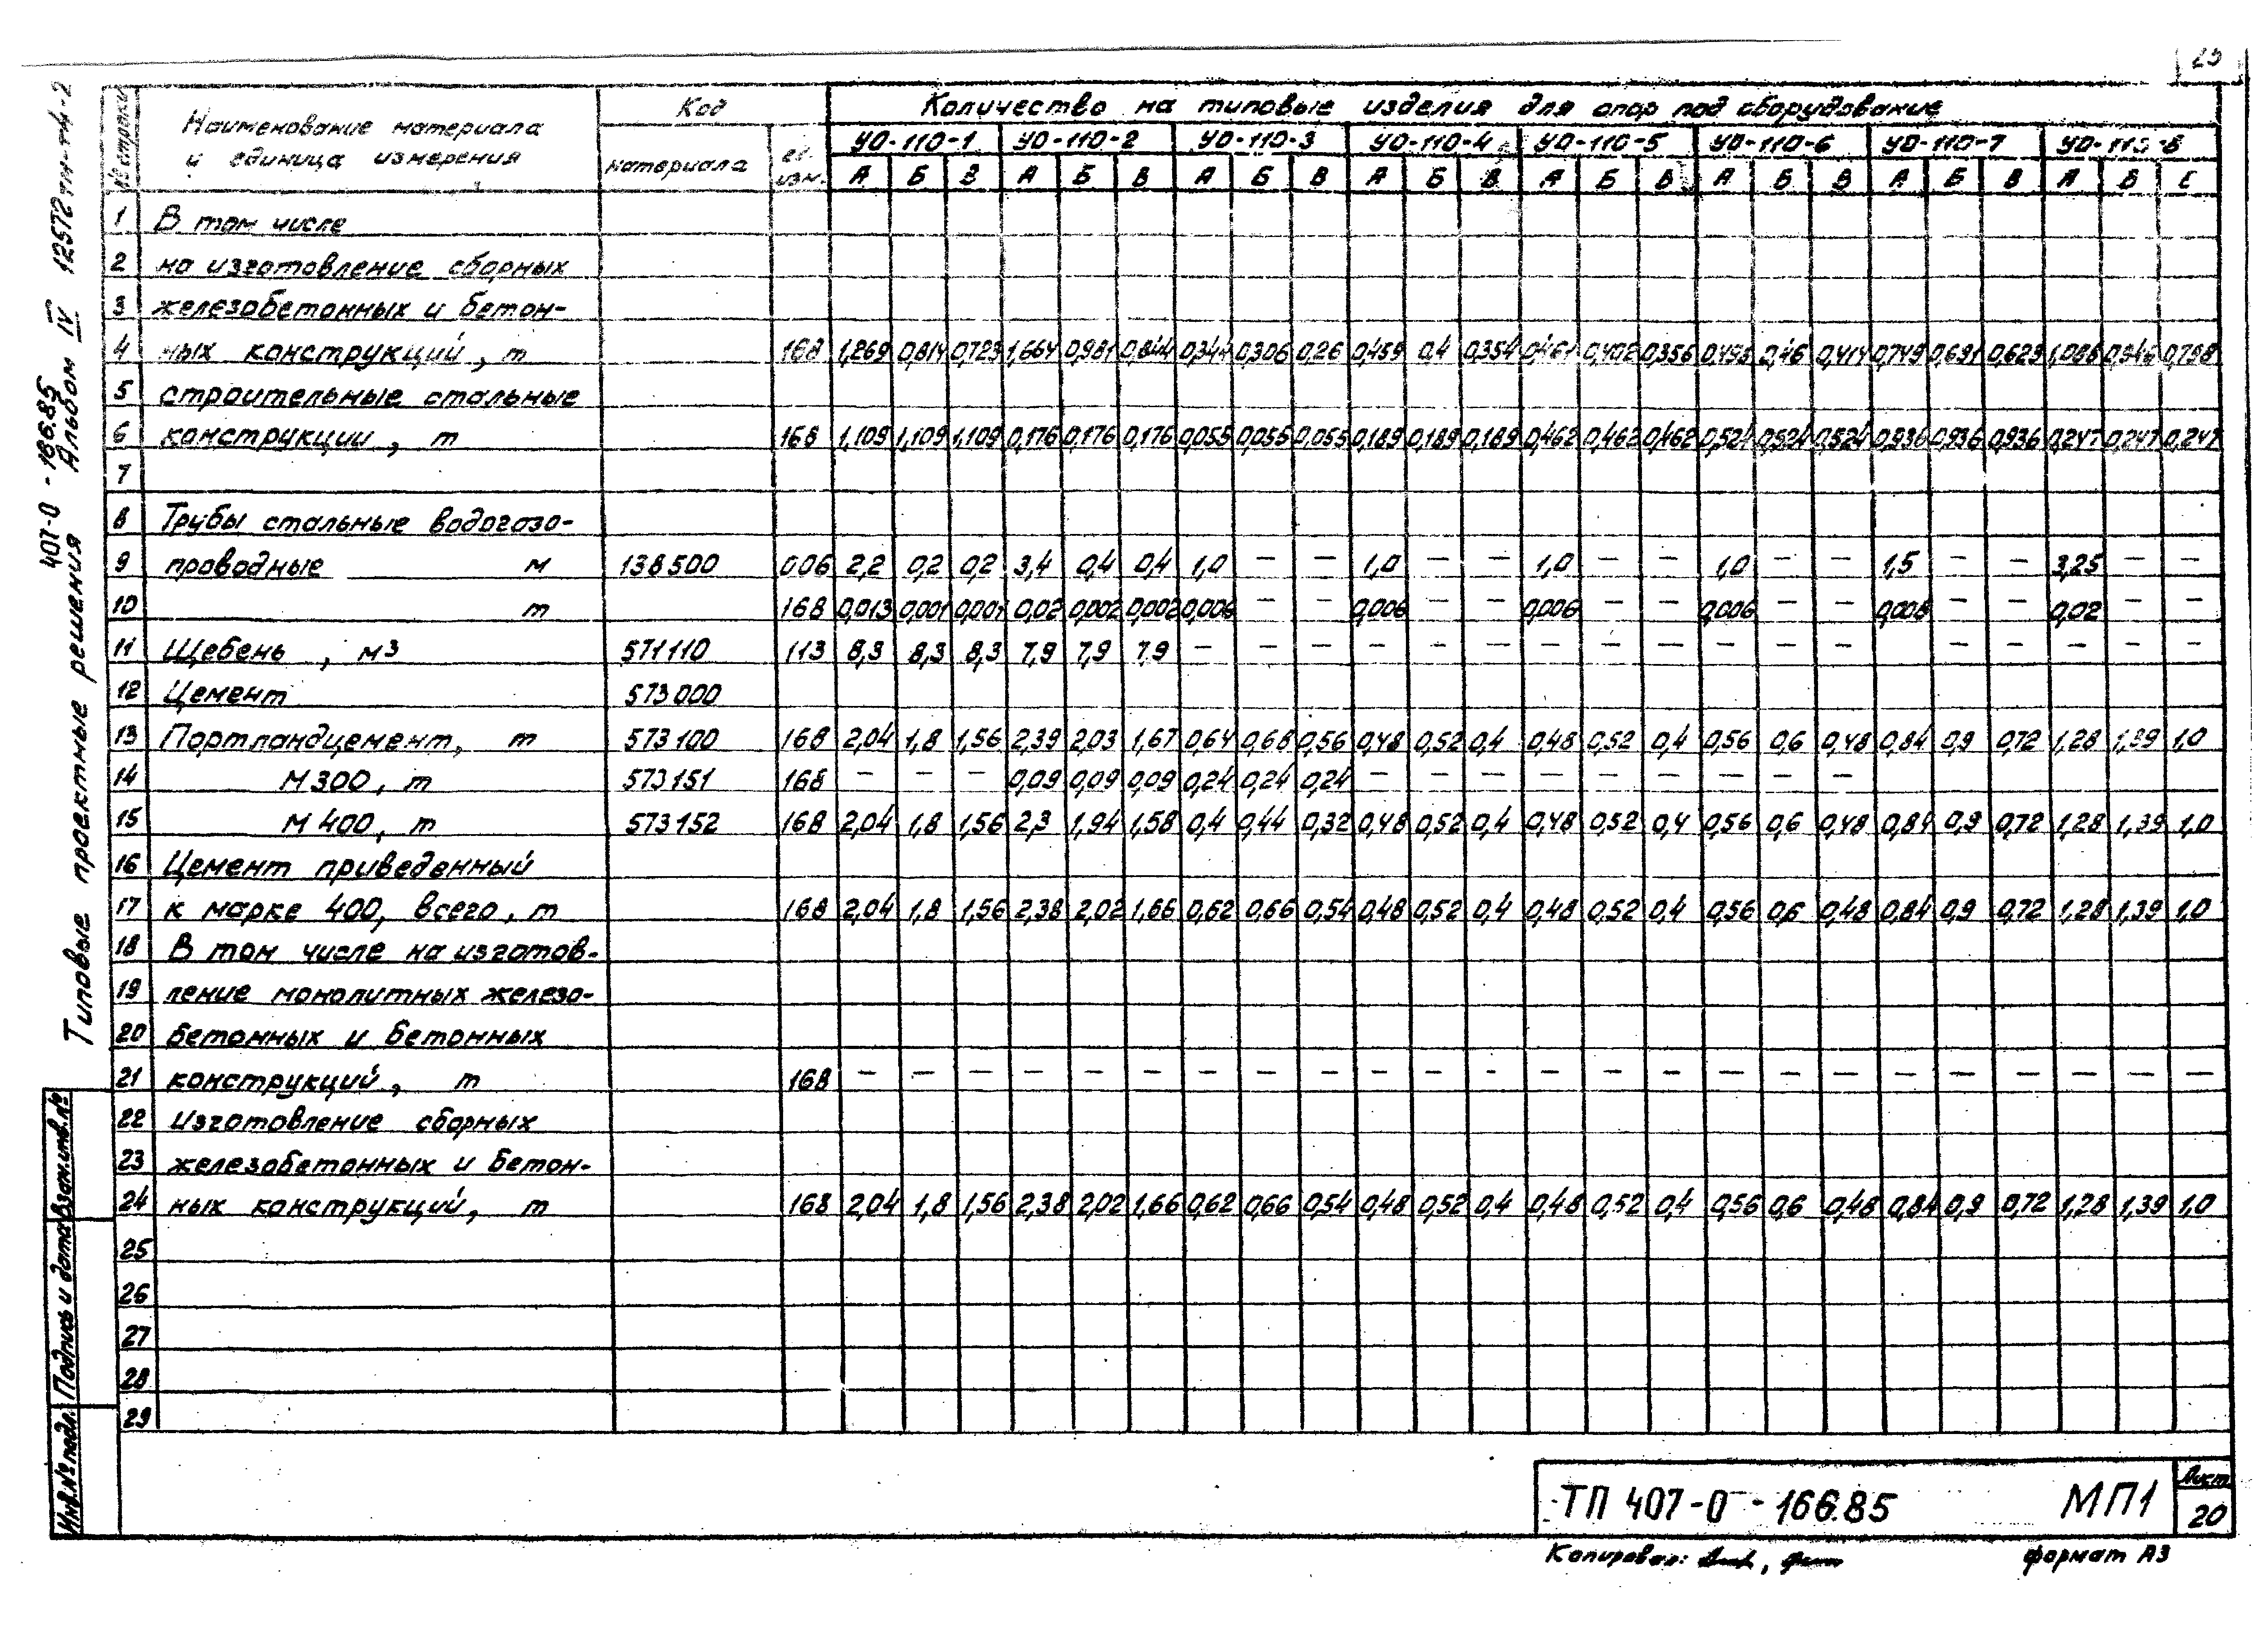 25
407-0-166.85
Типовые проектные решения Альбом IV 12572тм-т4-2
№ строки | Наименование материала и единица измерения | Код | Количество на типовые изделия для опор под оборудование
материала | ед. изм. | УО-110-1 | УО-110-2 | УО-110-3 | УО-110-4 | УО-110-5 | УО-110-6 | УО-110-7 | УО-110-8
А | Б | В | А | Б | В | А | Б | В | А | Б | В | А | Б | В | А | Б | В | А | Б | В | А | В | С
1 В том числе
2 на изготовление сборных
3 железобетонных и бетон-
4 ных конструкций, т 168 1,269 0,814 0,723 1,664 0,981 0,844 0,344 0,306 0,26 0,459 0,4 0,354 0,461 0,402 0,356 0,498 0,46 0,414 0,749 0,691 0,623 0,798
5 строительные стальные
6 конструкции, т 168 1,109 1,109 1,109 0,176 0,176 0,176 0,055 0,055 0,055 0,189 0,189 0,189 0,462 0,462 0,462 0,524 0,524 0,524 0,936 0,936 0,936 0,247 0,247 0,247
7
8 Трубы стальные водогазо-
9 проводные м 138500 006 2,2 0,2 0,2 3,4 0,4 0,4 1,0 — — 1,0 — — 1,0 — — 1,0 — — 1,5 — — 3,25 — —
10 т 168 0,013 0,001 0,001 0,02 0,002 0,002 0,006 — — 0,006 — — 0,006 — — 0,006 — — 0,008 — — 0,02 — —
11 Щебень, м3 571110 113 8,3 8,3 8,3 7,9 7,9 7,9 — — — — — — — — — — — — — — — — — —
12 Цемент 573000
13 Портландцемент, т 573100 168 2,04 1,8 1,56 2,39 2,03 1,67 0,64 0,68 0,56 0,48 0,52 0,4 0,48 0,52 0,4 0,56 0,6 0,48 0,84 0,9 0,72 1,28 1,39 1,0
14 М300, т 573151 168 — — — 0,09 0,09 0,09 0,24 0,24 0,24 — — — — — — — — —
15 М400, т 573152 168 2,04 1,8 1,56 2,3 1,94 1,58 0,4 0,44 0,32 0,48 0,52 0,4 0,48 0,52 0,4 0,56 0,6 0,48 0,84 0,9 0,72 1,28 1,39 1,0
16 Цемент приведенный
17 к марке 400, всего, т 168 2,04 1,8 1,56 2,38 2,02 1,66 0,62 0,66 0,54 0,48 0,52 0,4 0,48 0,52 0,4 0,56 0,6 0,48 0,84 0,9 0,72 1,28 1,39 1,0
18 В том числе на изготов-
19 ление монолитных железо-
20 бетонных и бетонных
21 конструкций, т 168 — — — — — — — — — — — — — — — — — — — — — — — —
22 изготовление сборных
23 железобетонных и бетон-
24 ных конструкций, т 168 2,04 1,8 1,56 2,38 2,02 1,66 0,62 0,66 0,54 0,48 0,52 0,4 0,48 0,52 0,4 0,56 0,6 0,48 0,84 0,9 0,72 1,28 1,39 1,0
25
26
27
28
29
Инв.№ подл. Подпись и дата Взам.инв.№
ТП 407-0-166.85 МП1
Лист
20
Копировал:
формат А3